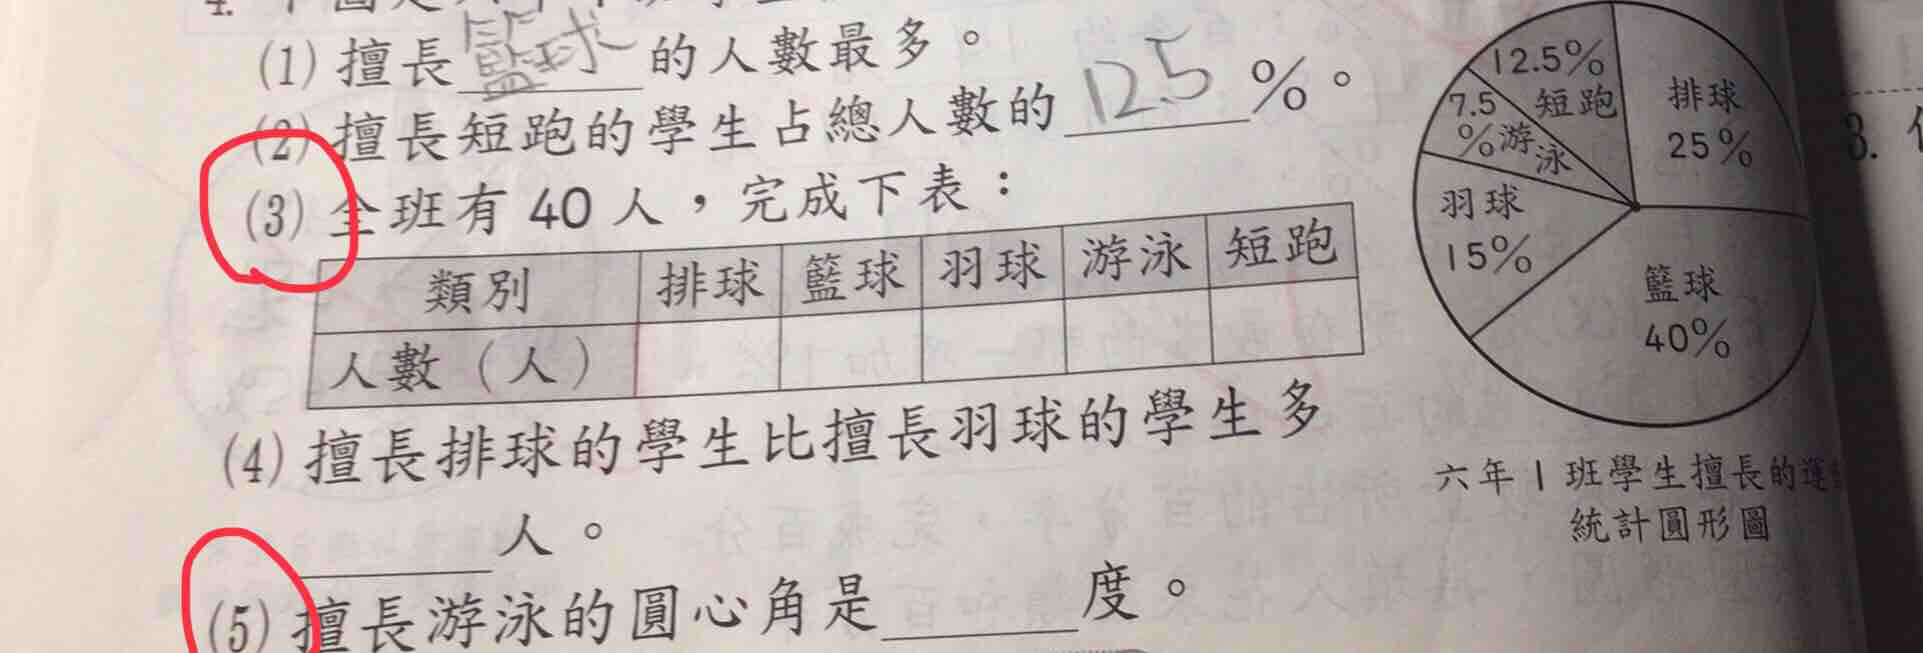 (1) 擅長籃球的人數最多。
(2) 擅長短跑的學生占總人數的 12.5 %。
(3) 全班有 40 人，完成下表：
類別 排球 籃球 羽球 游泳 短跑
人數（人）
(4) 擅長排球的學生比擅長羽球的學生多
人。
(5) 擅長游泳的圓心角是 度。
12.5%
短跑
排球
25%
7.5
%游泳
羽球
15%
籃球
40%
六年1班學生擅長的運
統計圓形圖
3.